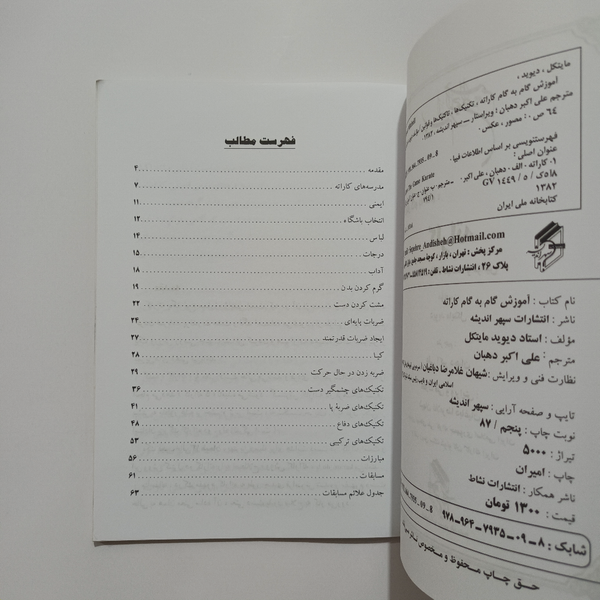 مایتکل ، دیوید ،
آموزش گام به گام کاراته ، تکنیک‌ها ، تاکتیک‌ها
مترجم علی اکبر دهبان ؛ ویراستار
سپهر اندیشه ، ۱۳۸۲
۶۴ ص . : مصور ، عکس .
فهرستنویسی بر اساس اطلاعات فیپا .
عنوان اصلی :
Karate
۱ کاراته - الف - دهبان ، علی اکبر
GV ۱۱۴۹ / ۵ /
۱۳۸۲
کتابخانه ملی ایران
Sepehre_Andisheh@Hotmail.com
مرکز پخش : تهران ، بازار ، کوچه مسجد جامع
پلاک ۲۶ ، انتشارات نشاط - تلفن :
نام کتاب : آموزش گام به گام کاراته
ناشر : انتشارات سپهر اندیشه
مؤلف : استاد دیوید مایتکل
مترجم : علی اکبر دهبان
نظارت فنی و ویرایش : شیهان غلامرضا دباغیان
اسلامی ایران و نایب رئیس
تایپ و صفحه آرایی : سپهر اندیشه
نوبت چاپ : پنجم / ۸۷
تیراژ : ۵۰۰۰
چاپ : امیران
ناشر همکار : انتشارات نشاط
قیمت : ۱۳۰۰ تومان
شابک : ۸-۰۹-۷۹۳۵-۹۶۴-۹۷۸
حق چاپ محفوظ و مخصوص ناشر
فهرست مطالب
مقدمه ۴
مدرسه‌های کاراته ۷
ایمنی ۱۱
انتخاب باشگاه ۱۲
لباس ۱۴
درجات ۱۵
آداب ۱۸
گرم کردن بدن ۱۹
مشت کردن دست ۲۲
ضربات پایه‌ای ۲۴
ایجاد ضربات قدرتمند ۲۷
کیا ۲۸
ضربه زدن در حال حرکت ۲۹
تکنیک‌های چشمگیر دست ۳۶
تکنیک‌های ضربهٔ پا ۴۱
تکنیک‌های دفاع ۴۸
تکنیک‌های ترکیبی ۵۳
مبارزات ۵۶
مسابقات ۶۱
جدول علائم مسابقات ۶۳